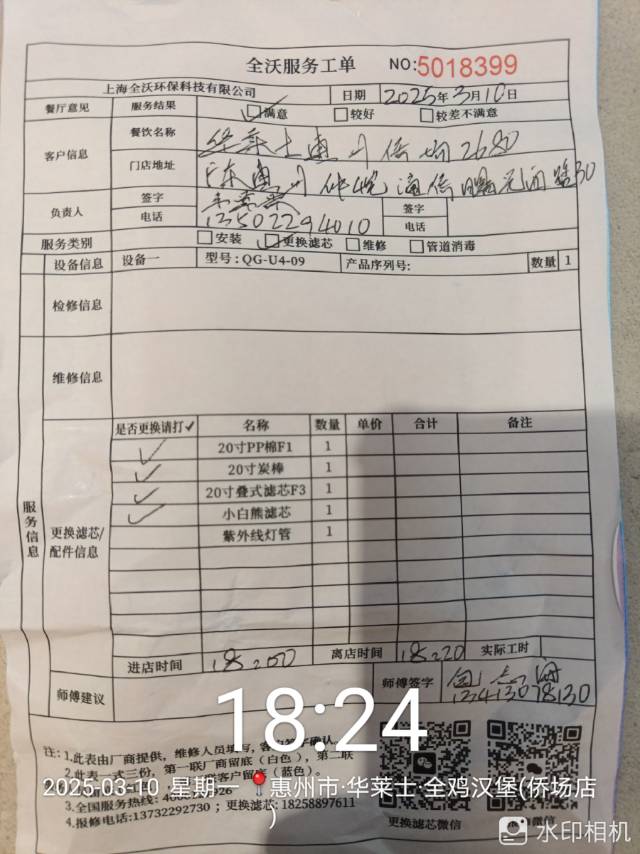 全沃服务工单 NO:5018399
上海全沃环保科技有限公司 日期 2025年3月10日
餐厅意见 服务结果 ☑满意 □较好 □较差不满意
客户信息 餐饮名称 华莱士惠州侨场2680
门店地址 广东惠州仲恺
负责人 签字 签字
电话 13502294010 电话
服务类别 □安装 ☑更换滤芯 □维修 □管道消毒
设备信息 设备一 型号:QG-U4-09 产品序列号: 数量 1
检修信息
维修信息
服务信息
更换滤芯/配件信息
是否更换请打✓ 名称 数量 单价 合计 备注
✓ 20寸PP棉F1 1
✓ 20寸炭棒 1
✓ 20寸叠式滤芯F3 1
✓ 小白熊滤芯 1
紫外线灯管 1
进店时间 18:00 离店时间 18:20 实际工时
师傅建议 师傅签字 13413078130
18:24
注:1.此表由厂商提供，维修人员填写，客户签字确认。
2.此表一式三份，第一联厂商留底(白色)，第二联
客户留存(蓝色)。
2025-03-10 星期一 惠州市·华莱士·全鸡汉堡(侨场店)
3.全国服务热线:
4.报修电话:13732292730；更换滤芯:18258897611
更换滤芯微信
水印相机